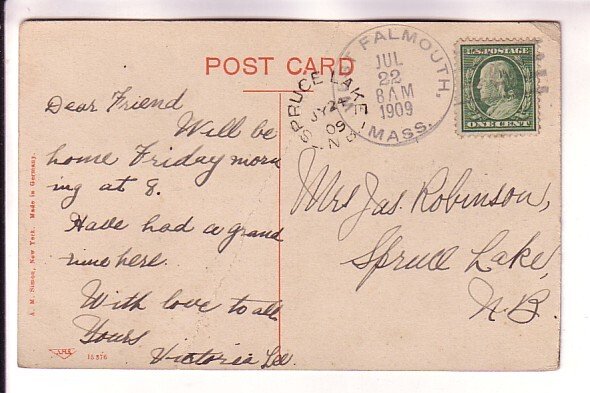 POST CARD
FALMOUTH, MASS.
JUL
22
8 AM
1909
SPRUCE LAKE N.B.
JY 24
09
U.S. POSTAGE
ONE CENT
Dear Friend
Will be
home Friday morn
ing at 8.
Have had a grand
time here.
With love to all
Yours
Victoria Lee
Mrs Jas. Robinson,
Spruce Lake,
N.B.
A. M. Simon, New York. Made in Germany.